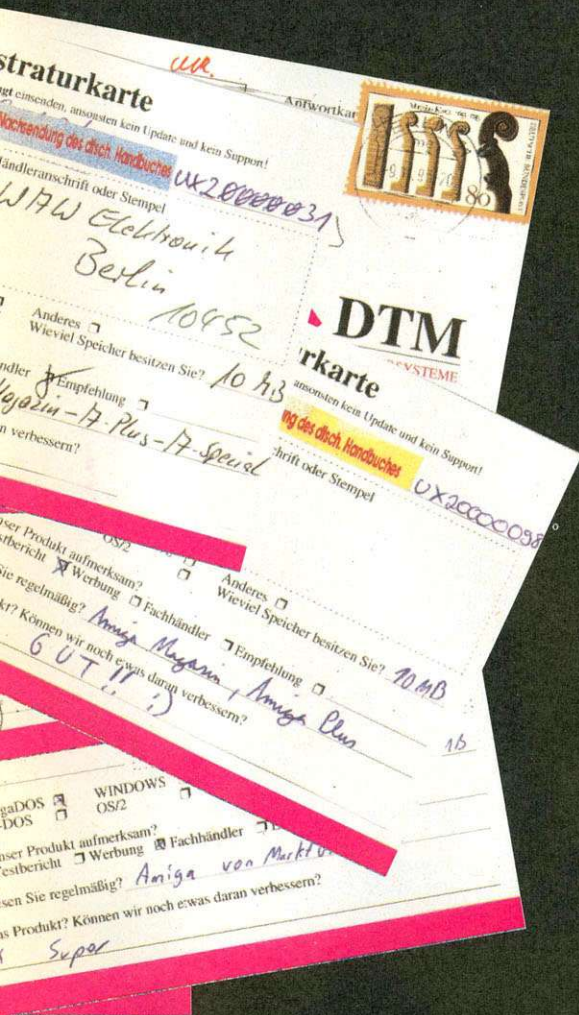 straturkarte
Antwortkar
ngt einsenden, ansonsten kein Update und kein Support!
Nachsendung des dtsch. Handbuches UX20000031
ändleranschrift oder Stempel
WAW Elektronik
Berlin
10452
80
DTM
SYSTEME
Anderes
Wieviel Speicher besitzen Sie? 10 MB
ndler Empfehlung
Magazin-A-Plus-A-Special
n verbessern?
rkarte
ansonsten kein Update und kein Support!
ng des dtsch. Handbuches UX20000098
hrift oder Stempel
OS/2
Anderes
Wieviel Speicher besitzen Sie? 10 MB
nser Produkt aufmerksam?
stbericht Werbung Fachhändler Empfehlung
Sie regelmäßig? Amiga Magazin, Amiga Plus
kt? Können wir noch etwas daran verbessern?
GUT!! :)
gaDOS WINDOWS
-DOS OS/2
nser Produkt aufmerksam?
estbericht Werbung Fachhändler
sen Sie regelmäßig? Amiga von Markt
as Produkt? Können wir noch etwas daran verbessern?
Super